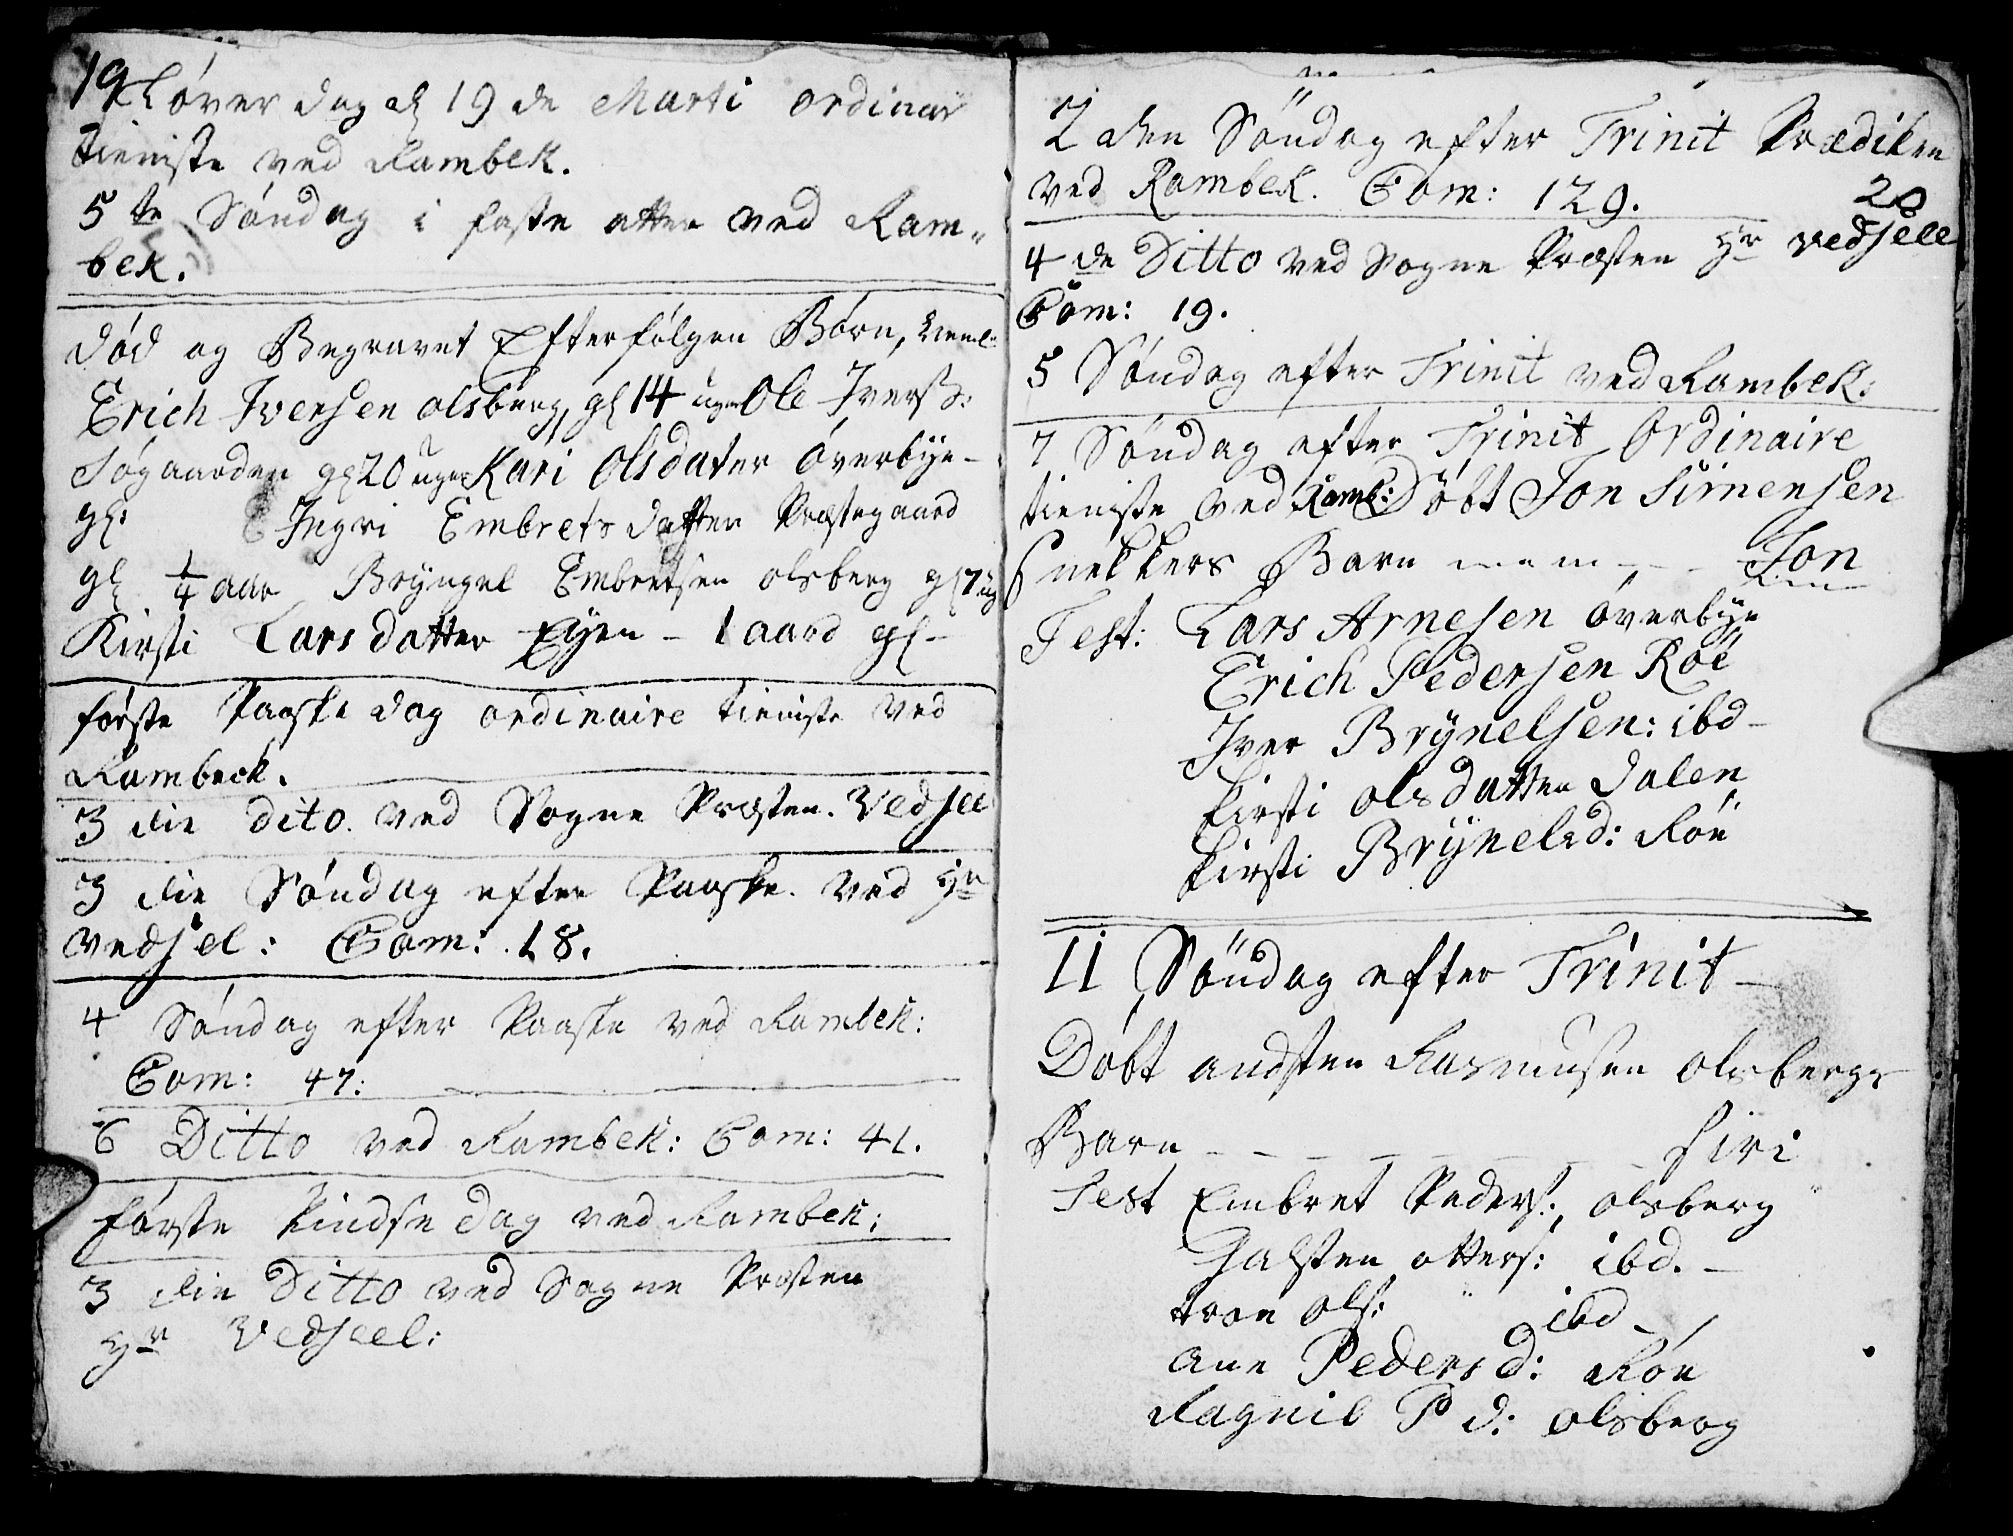 19
Løverdag d 19 de Marti ordinair
tieniste ved Rambek.
5 te Søndag i faste atter ved Ram„
bek.
Død og Begravet Efterfølgen Børn, neml:
Erich Iversen olsberg, gl 14 uger Ole Iverss:
Søgaarden gl 20 uger Kari Olsdater Øverbye-
gl: Ingri Embrets datter Præstegaard
gl 1/4 aar Bryngel Embretsen olsberg gl 7 ug
Kirsti Larsdatter Eyen - 1 aard gl-
første Paaske dag ordinaire tieniste ved
Rambeck.
3 die dito. ved Sogne Præsten. Vedsel
3 die Søndag efter Paaske. ved Hr
Vedsel: Com: 18.
4 Søndag efter Paaske ved Rambek:
Com: 47:
6 Ditto ved Rambek: Com: 41.
første Pindse dag ved Rambek:
3 die Ditto ved Sogne Præsten
Hr Vedseel:
20
2 den Søndag efter Trinit Prædiken
ved Rambek. Com: 129.
4 de Ditto ved Sogne Præsten Hr Vedsele
Com: 19.
5 Søndag efter Trinit ved Rambek:
7 Søndag efter Trinit Ordinaire
tieniste ved Ramb: Døbt Jon Simensen
Snekkers Barn - - - - Jon
Test: Lars Arnesen øverbye
Erich Pedersen Röe
Iver Brynelsen: ibd-
Kirsti olsdatter Dalen
Kirsti Brynelsd: Röe
11 Søndag efter Trinit -
Døbt andsten Rasmusen olsbergs
Barn - - - - - - - Siri
Test Embret Peders: olsberg
Halsten otters: ibd. -
tron ols: ibd -
ane Pedersd: Röe
Ragnil P d: olsberg